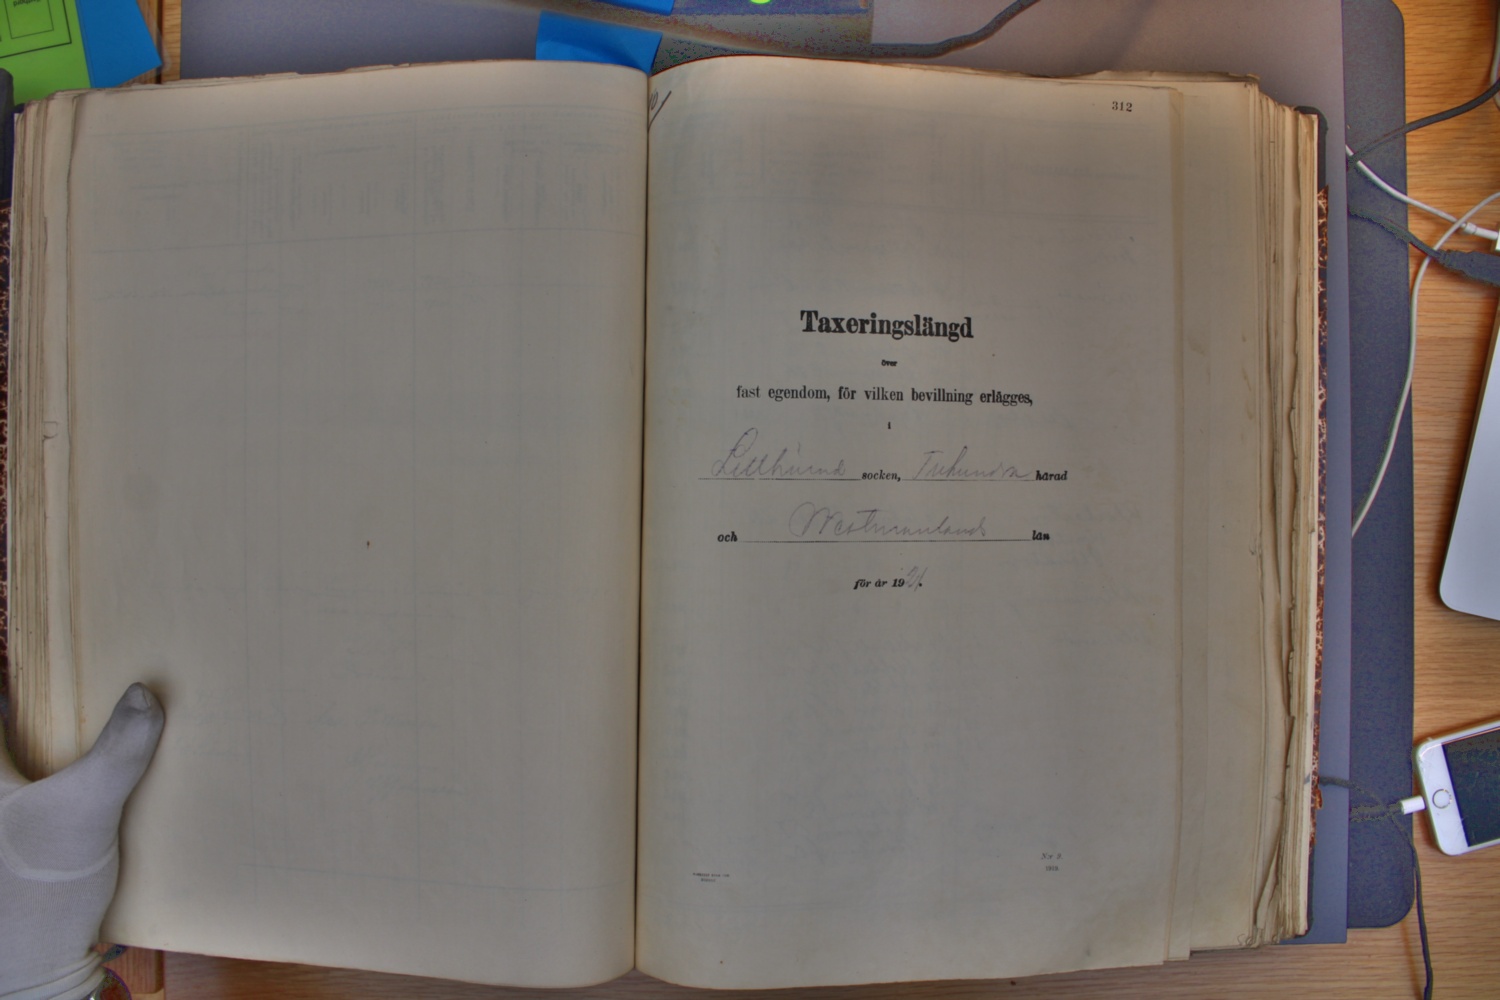 312
Taxeringslängd
över
fast egendom, för vilken bevillning erlägges,
i
socken, härad
och Westmanlands län
för år 1921.
N:r 9.
1919.